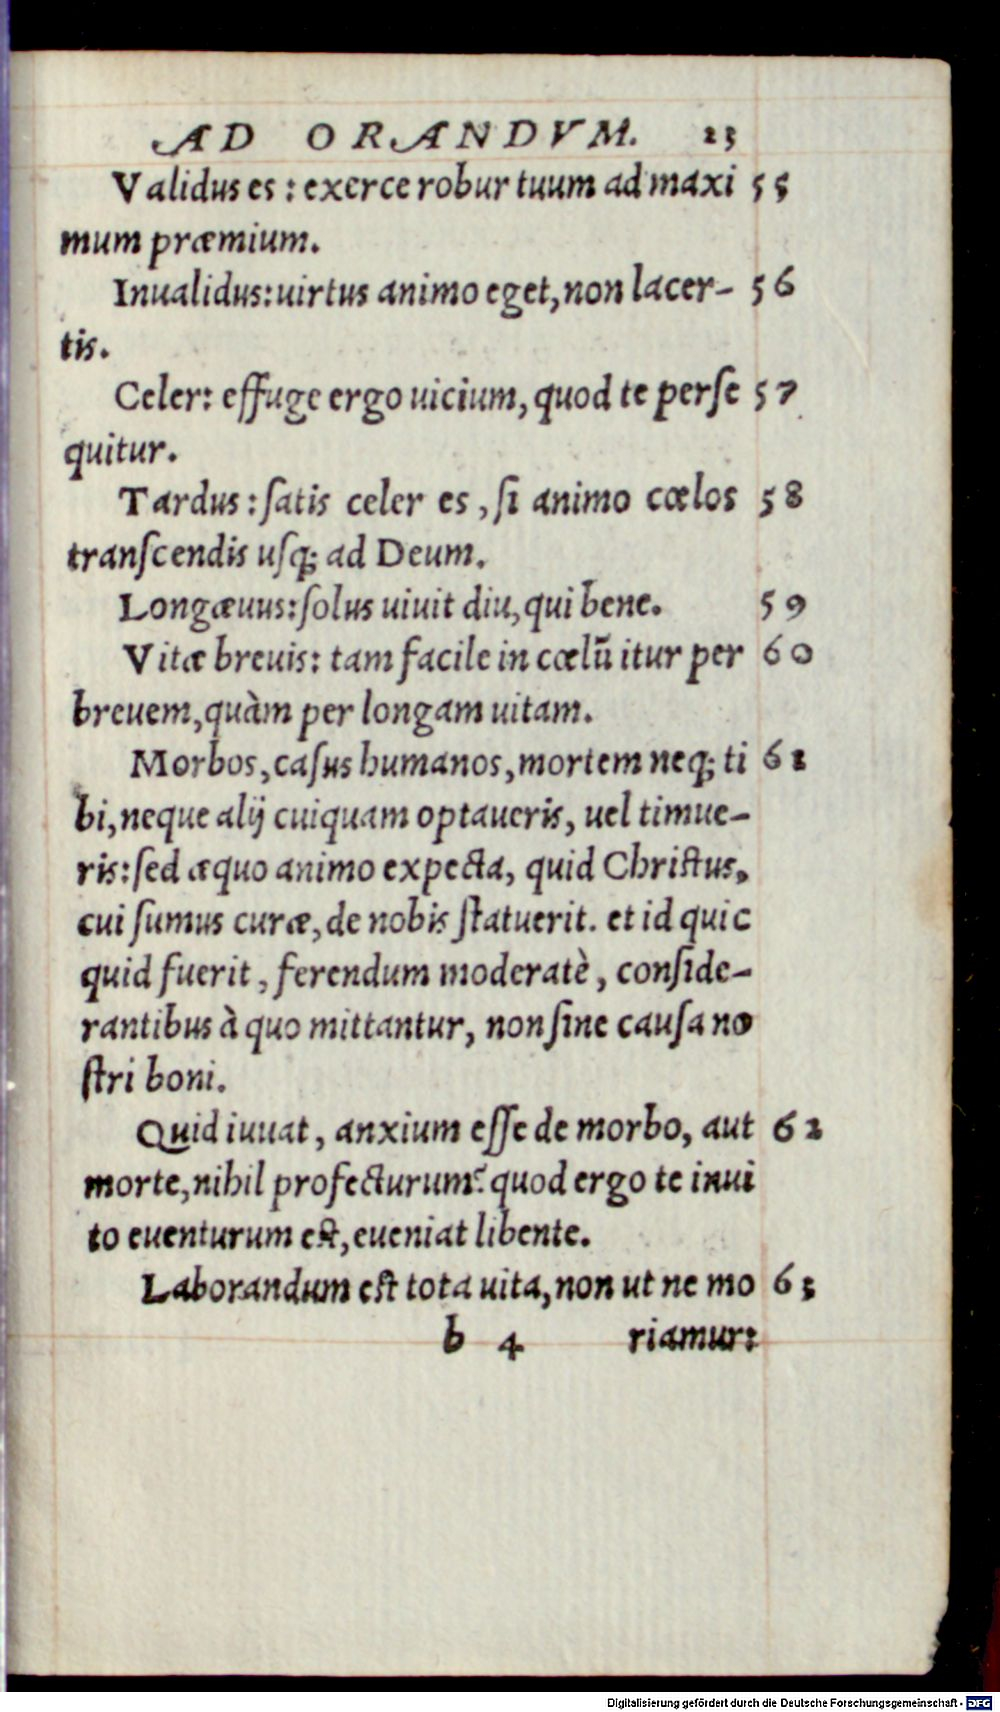 AD ORANDVM. 23
Validus es : exerce robur tuum ad maxi 55
mum præmium.
Inualidus: uirtus animo eget, non lacer- 56
tis.
Celer: effuge ergo uicium, quod te perse 57
quitur.
Tardus : satis celer es , si animo cœlos 58
transcendis usq; ad Deum.
Longæuus: solus uiuit diu, qui bene. 59
Vitæ breuis: tam facile in cœlũ itur per 60
breuem, quàm per longam uitam.
Morbos, casus humanos, mortem neq; ti 61
bi, neque alij cuiquam optaueris, uel timue-
ris: sed æquo animo expecta, quid Christus,
cui sumus curæ, de nobis statuerit. et id quic
quid fuerit , ferendum moderatè , conside-
rantibus à quo mittantur, non sine causa no
stri boni.
Quid iuuat , anxium esse de morbo, aut 62
morte, nihil profecturum? quod ergo te inui
to euenturum est, eueniat libente.
Laborandum est tota uita, non ut ne mo 63
b 4 riamur:
Digitalisierung gefördert durch die Deutsche Forschungsgemeinschaft - DFG